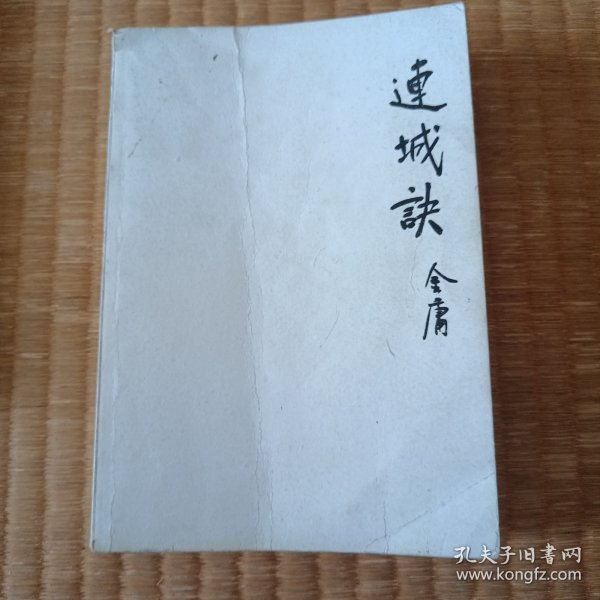 連城訣
金庸
孔夫子旧書网
www.kongfz.com